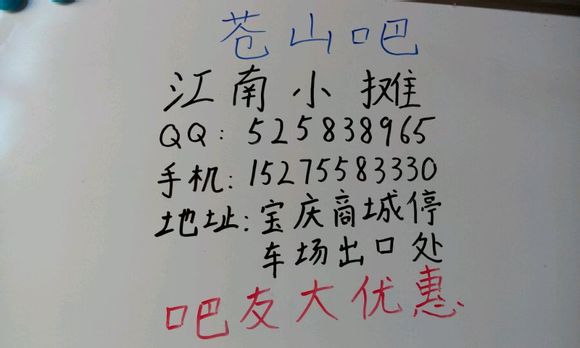 苍山吧
江南小摊
QQ:525838965
手机:15275583330
地址:宝庆商城停
车场出口处
吧友大优惠